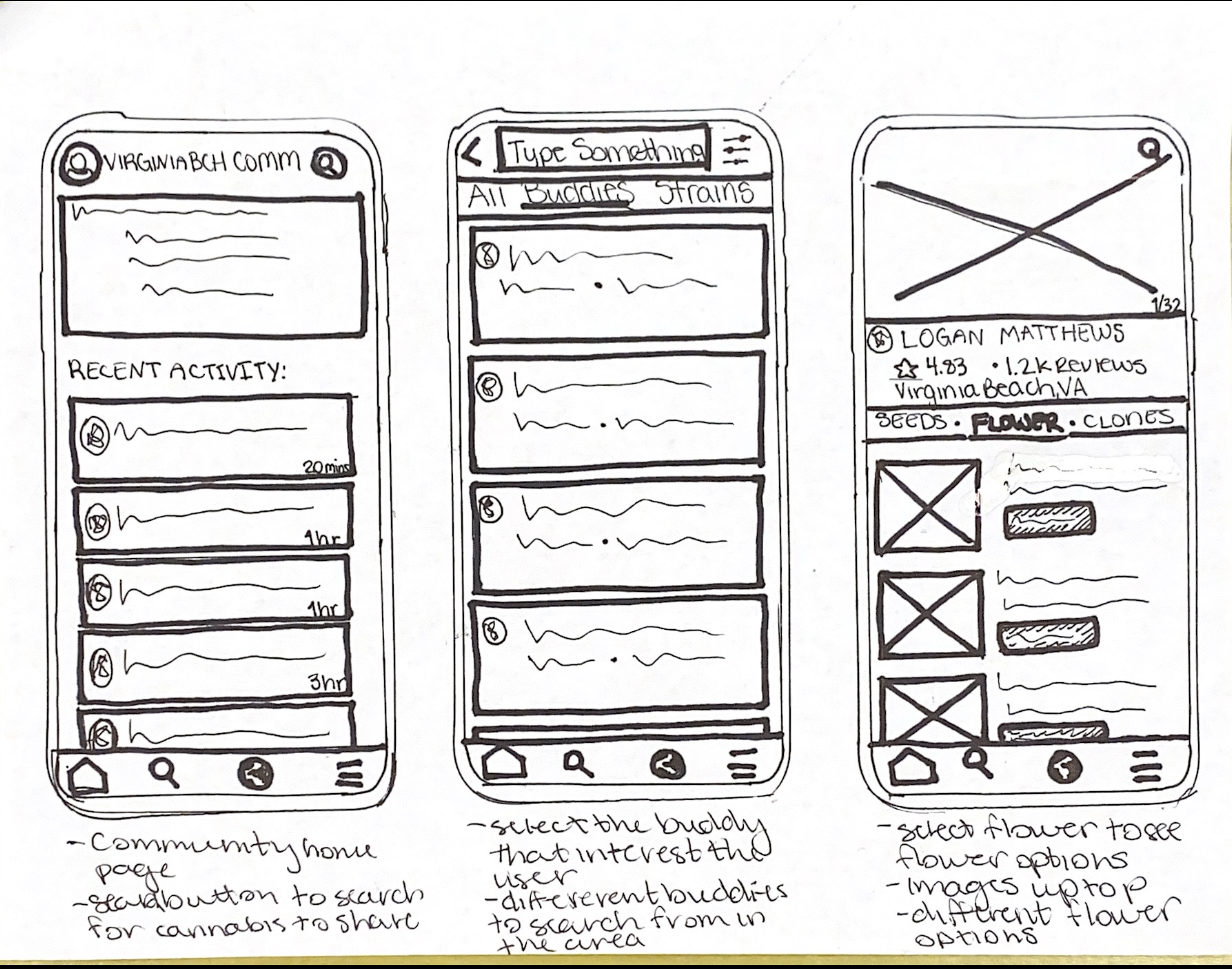 VIRGINIA BCH COMM
RECENT ACTIVITY:
20mins
1hr
1hr
3hr
- Community home
page
- seach button to search
for cannabis to share
Type Something
All Buddies Strains
- select the buddy
that interest the
user
- differerent buddies
to search from in
the area
1/32
LOGAN MATTHEWS
4.83 • 1.2k Reviews
Virginia Beach, VA
SEEDS • FLOWER • CLONES
- select flower to see
flower options
- Images up top
- different flower
options